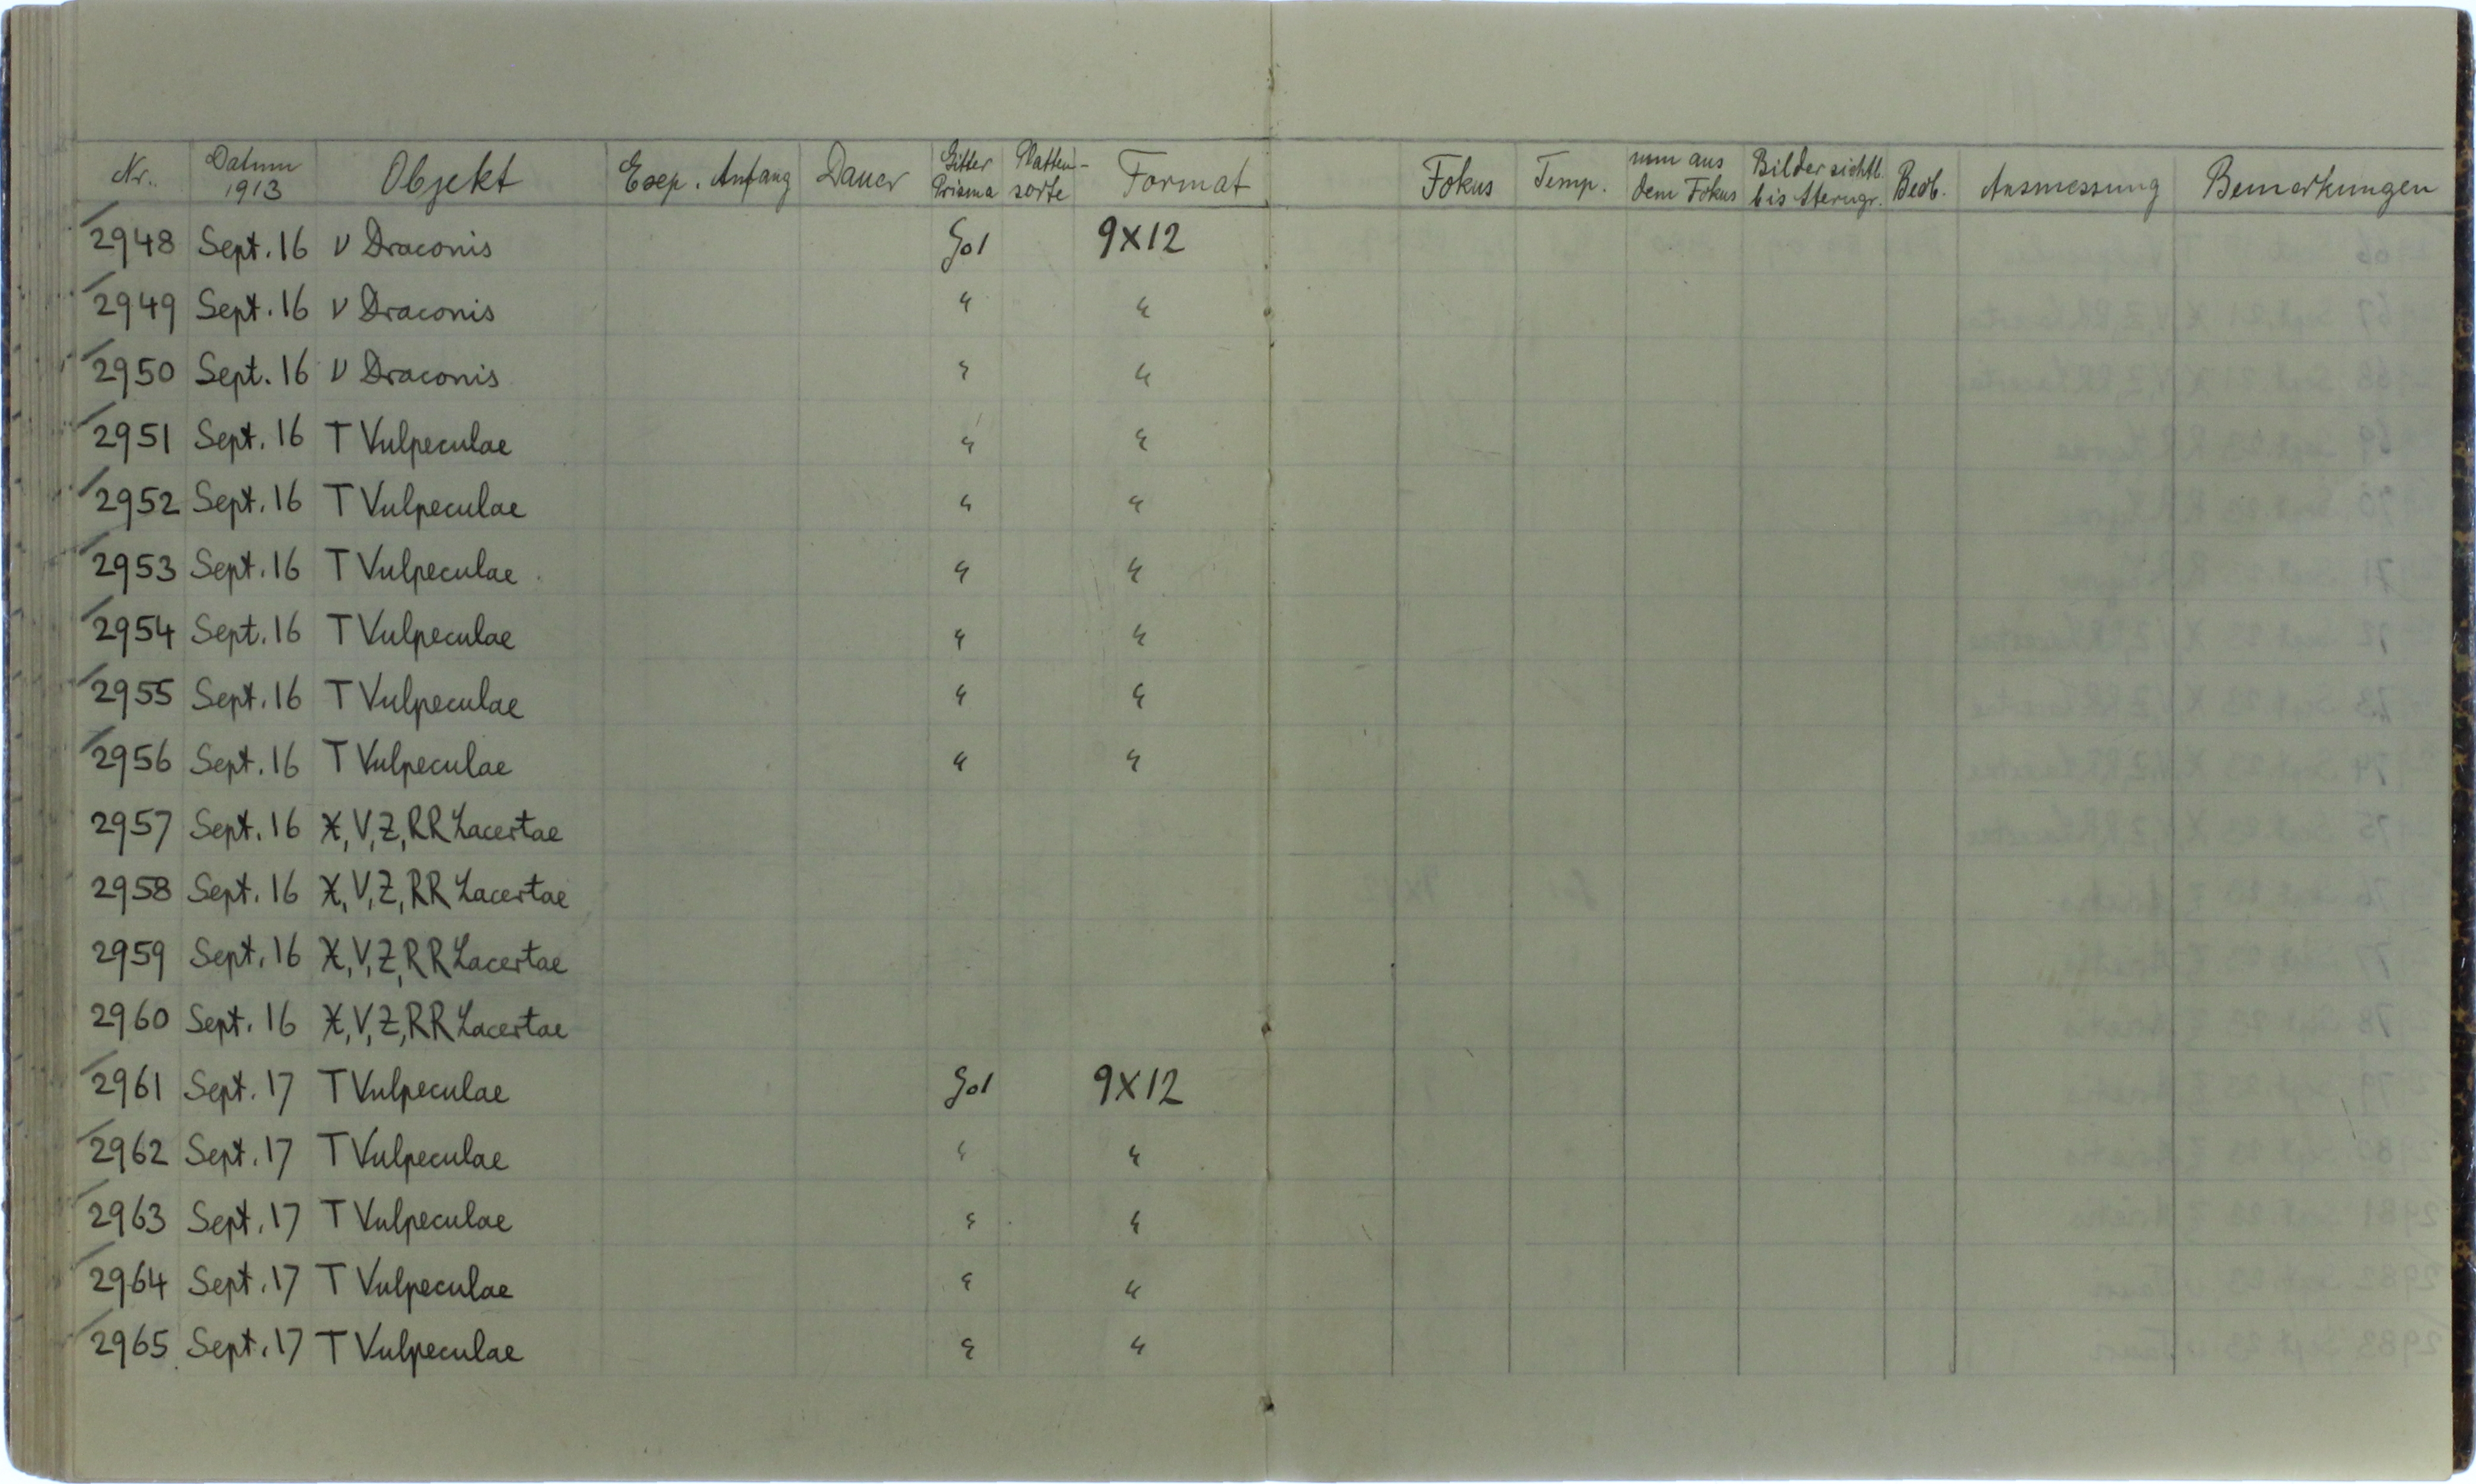 Nr. Datum 1913 Objekt Exp. Anfang Dauer Gitter Prisma Platten-sorte Format Fokus Temp. mm aus dem Fokus Bilder sichtb. bis Sterngr. Beob. Ausmessung Bemerkungen
2948 Sept. 16 ν Draconis 9X12
2949 Sept. 16 ν Draconis " "
2950 Sept. 16 ν Draconis " "
2951 Sept. 16 T Vulpeculae " "
2952 Sept. 16 T Vulpeculae " "
2953 Sept. 16 T Vulpeculae " "
2954 Sept. 16 T Vulpeculae " "
2955 Sept. 16 T Vulpeculae " "
2956 Sept. 16 T Vulpeculae " "
2957 Sept. 16 X, V, Z, RR Lacertae
2958 Sept. 16 X, V, Z, RR Lacertae
2959 Sept. 16 X, V, Z, RR Lacertae
2960 Sept. 16 X, V, Z, RR Lacertae
2961 Sept. 17 T Vulpeculae 9X12
2962 Sept. 17 T Vulpeculae " "
2963 Sept. 17 T Vulpeculae " "
2964 Sept. 17 T Vulpeculae " "
2965 Sept. 17 T Vulpeculae " "